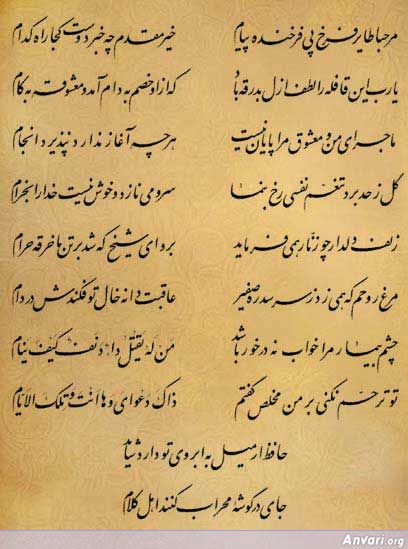 مرحبا طایر فرخ پی فرخنده پیام خیر مقدم چه خبر دوست کجا راه کدام
یارب این قافله را لطف ازل بدرقه باد که ازو خصم به دام آمد و معشوقه به کام
ماجرای من و معشوق مرا پایان نیست هرچه آغاز ندارد نپذیرد انجام
گل ز حد برد تنعم نفسی رخ بنما سرو می نازد و خوش نیست خدا را بخرام
زلف دلدار چو زنار همی فرماید برو ای شیخ که شد بر تن ما خرقه حرام
مرغ روحم که همی زد ز سر سدره صفیر عاقبت دانه خال تو فکندش در دام
چشم بیمار مرا خواب نه درخور باشد من له یقتل داء دنف کیف ینام
تو ترحم نکنی بر من مخلص گفتم ذاک دعوای و ها انت و تلک الایام
حافظ ار میل به ابروی تو دارد شاید
جای در گوشه محراب کنند اهل کلام
Anvari.org